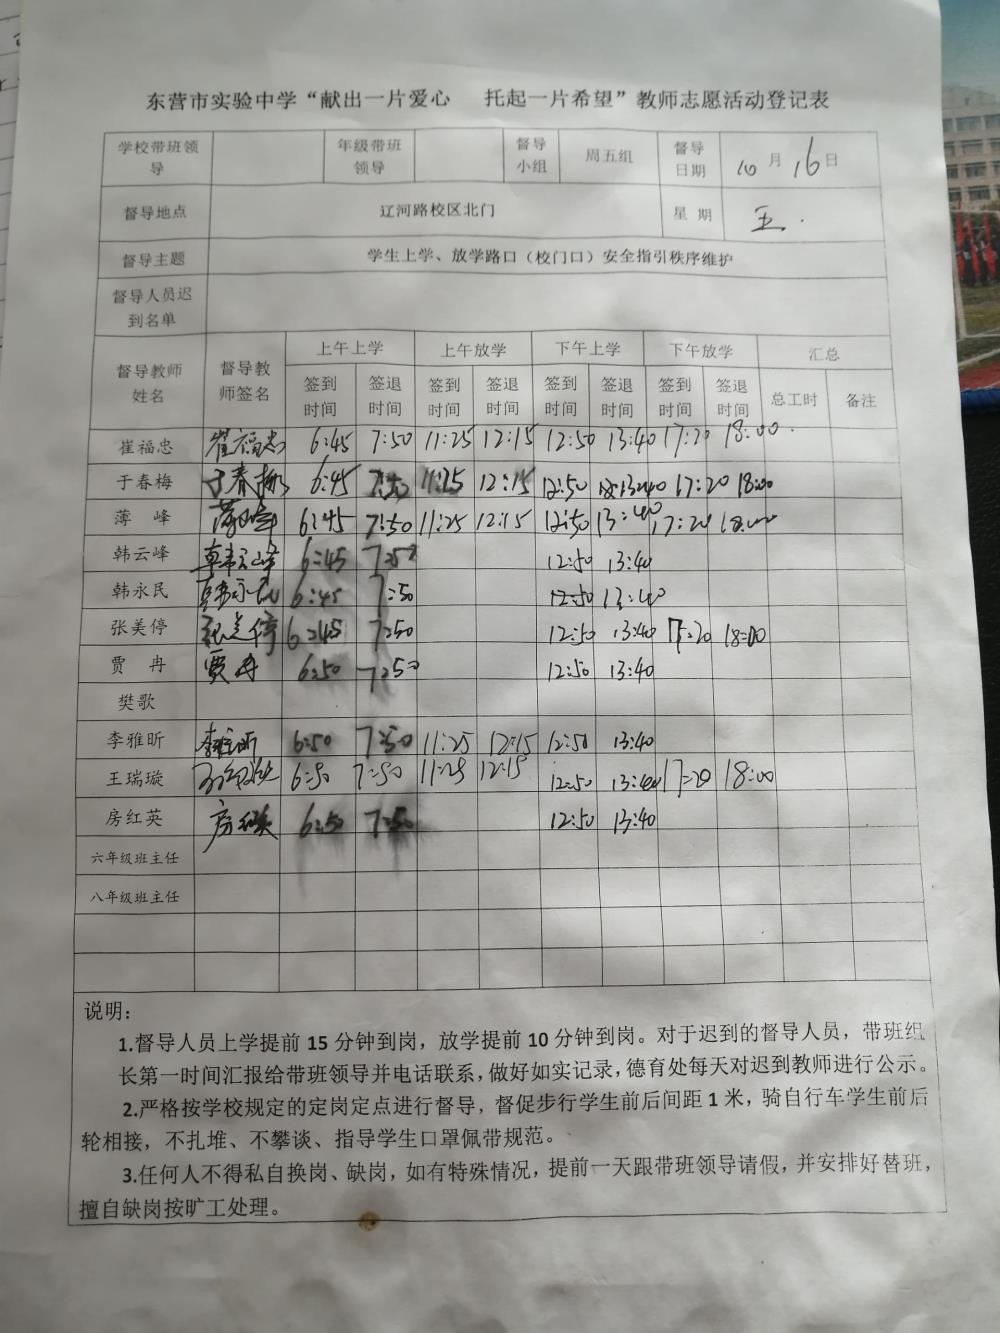 东营市实验中学“献出一片爱心 托起一片希望”教师志愿活动登记表
学校带班领导 年级带班领导 督导小组 周五组 督导日期 10月16日
督导地点 辽河路校区北门 星期 五.
督导主题 学生上学、放学路口（校门口）安全指引秩序维护
督导人员迟到名单
督导教师姓名 督导教师签名 上午上学 上午放学 下午上学 下午放学 汇总
签到时间 签退时间 签到时间 签退时间 签到时间 签退时间 签到时间 签退时间 总工时 备注
崔福忠 崔福忠 6:45 7:50 11:25 12:15 12:50 13:40 17:20 18:00
于春梅 于春梅 6:45 7:50 11:25 12:15 12:50 13:40 17:20 18:00
薄峰 薄峰 6:45 7:50 11:25 12:15 12:50 13:40 17:20 18:00
韩云峰 韩云峰 6:45 7:50 12:50 13:40
韩永民 韩永民 6:45 7:50 12:50 13:40
张美停 张美停 6:45 7:50 12:50 13:40 17:20 18:00
贾冉 贾冉 6:50 7:50 12:50 13:40
樊歌
李雅昕 李雅昕 6:50 7:50 11:25 12:15 12:50 13:40
王瑞璇 6:50 7:50 11:25 12:15 12:50 13:40 17:20 18:00
房红英 房红英 6:50 7:50 12:50 13:40
六年级班主任
八年级班主任
说明：
1.督导人员上学提前15分钟到岗，放学提前10分钟到岗。对于迟到的督导人员，带班组
长第一时间汇报给带班领导并电话联系，做好如实记录，德育处每天对迟到教师进行公示。
2.严格按学校规定的定岗定点进行督导，督促步行学生前后间距1米，骑自行车学生前后
轮相接，不扎堆、不攀谈、指导学生口罩佩带规范。
3.任何人不得私自换岗、缺岗，如有特殊情况，提前一天跟带班领导请假，并安排好替班，
擅自缺岗按旷工处理。